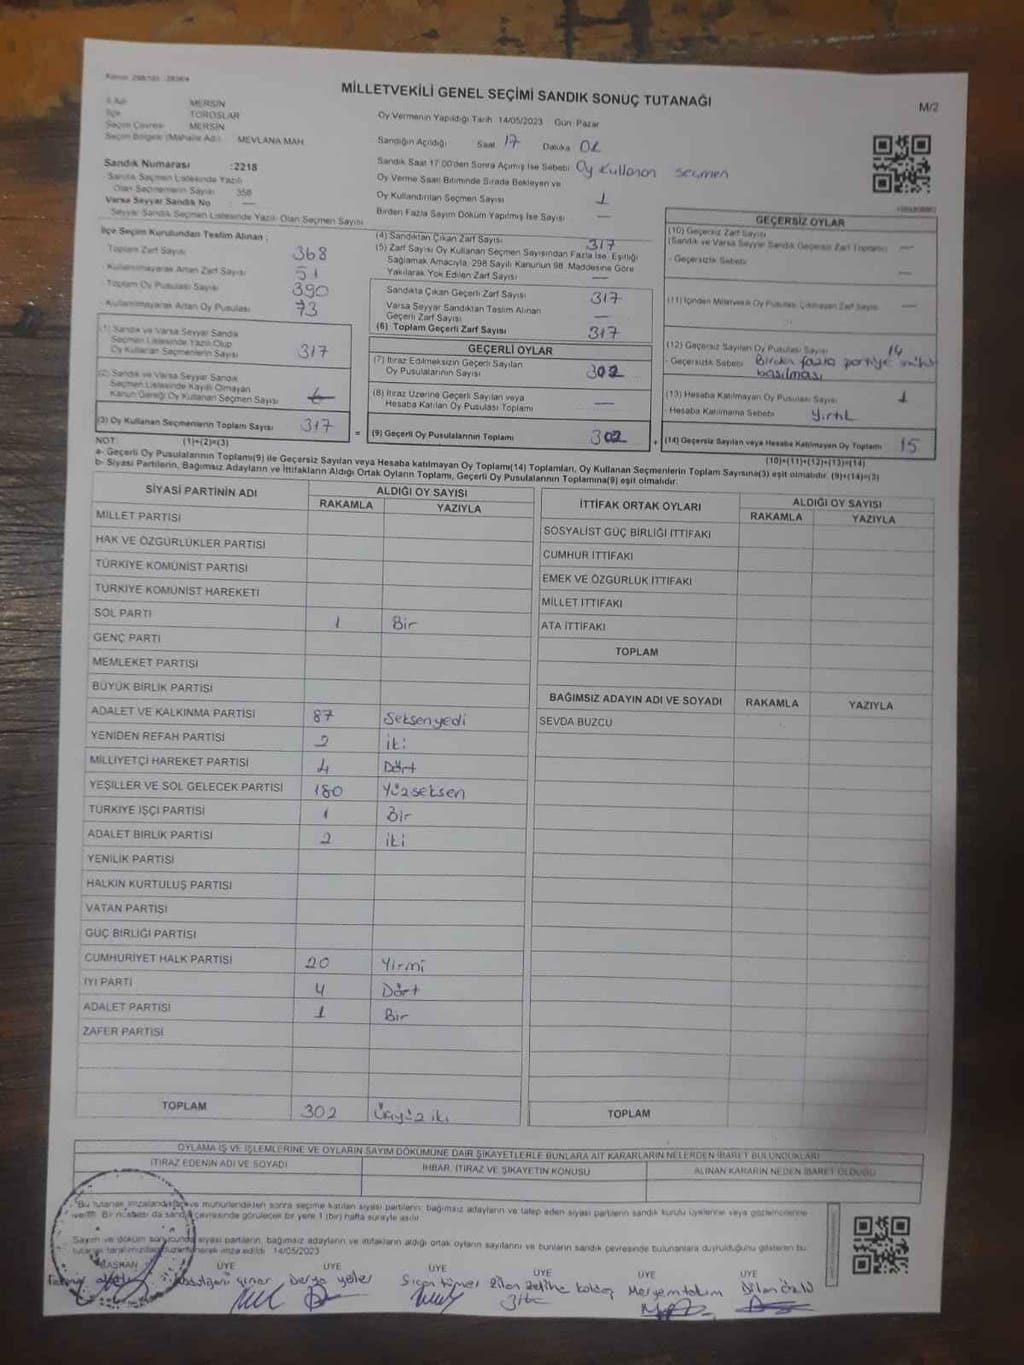 MİLLETVEKİLİ GENEL SEÇİMİ SANDIK SONUÇ TUTANAĞI
M/2
İl Adı MERSİN
İlçe TOROSLAR
Seçim Çevresi MERSİN
Seçim Bölgesi (Mahalle Adı) MEVLANA MAH.
Sandık Numarası :2218
Sandık Seçmen Listesinde Yazılı
Olan Seçmenlerin Sayısı 358
Varsa Seyyar Sandık No : —
Seyyar Sandık Seçmen Listesinde Yazılı Olan Seçmen Sayısı
Oy Vermenin Yapıldığı Tarih 14/05/2023 Gün Pazar
Sandığın Açıldığı Saat 17 Dakika 02
Sandık Saat 17:00'den Sonra Açılmış İse Sebebi Oy Kullanan seçmen
Oy Verme Saati Bitiminde Sırada Bekleyen ve
Oy Kullandırılan Seçmen Sayısı 1
Birden Fazla Sayım Döküm Yapılmış İse Sayısı —
İlçe Seçim Kurulundan Teslim Alınan :
Toplam Zarf Sayısı 368
- Kullanılmayarak Artan Zarf Sayısı 51
- Toplam Oy Pusulası Sayısı 390
- Kullanılmayarak Artan Oy Pusulası 73
(1) Sandık ve Varsa Seyyar Sandık
Seçmen Listesinde Yazılı Olup
Oy Kullanan Seçmenlerin Sayısı 317
(2) Sandık ve Varsa Seyyar Sandık
Seçmen Listesinde Kayıtlı Olmayan
Kanun Gereği Oy Kullanan Seçmen Sayısı
(3) Oy Kullanan Seçmenlerin Toplam Sayısı 317
(1)+(2)=(3)
(4) Sandıktan Çıkan Zarf Sayısı 317
(5) Zarf Sayısı Oy Kullanan Seçmen Sayısından Fazla İse Eşitliği
Sağlamak Amacıyla, 298 Sayılı Kanunun 98. Maddesine Göre
Yakılarak Yok Edilen Zarf Sayısı —
Sandıkta Çıkan Geçerli Zarf Sayısı 317
Varsa Seyyar Sandıktan Teslim Alınan
Geçerli Zarf Sayısı —
(6) Toplam Geçerli Zarf Sayısı 317
GEÇERLİ OYLAR
(7) İtiraz Edilmeksizin Geçerli Sayılan
Oy Pusulalarının Sayısı 302
(8) İtiraz Üzerine Geçerli Sayılan veya
Hesaba Katılan Oy Pusulası Toplamı —
= (9) Geçerli Oy Pusulalarının Toplamı 302 +
GEÇERSİZ OYLAR
(10) Geçersiz Zarf Sayısı
(Sandık ve Varsa Seyyar Sandık Geçersiz Zarf Toplamı) —
- Geçersizlik Sebebi —
(11) İçinden Milletvekili Oy Pusulası Çıkmayan Zarf Sayısı —
(12) Geçersiz Sayılan Oy Pusulası Sayısı 14
- Geçersizlik Sebebi Birden fazla partiye mühür
basılması
(13) Hesaba Katılmayan Oy Pusulası Sayısı 1
- Hesaba Katılmama Sebebi Yırtık
(14) Geçersiz Sayılan veya Hesaba Katılmayan Oy Toplamı 15
(10)+(11)+(12)+(13)=(14)
NOT:
a- Geçerli Oy Pusulalarının Toplamı(9) ile Geçersiz Sayılan veya Hesaba katılmayan Oy Toplamı(14) Toplamları, Oy Kullanan Seçmenlerin Toplam Sayısına(3) eşit olmalıdır. (9)+(14)=(3)
b- Siyasi Partilerin, Bağımsız Adayların ve İttifakların Aldığı Ortak Oyların Toplamı, Geçerli Oy Pusulalarının Toplamına(9) eşit olmalıdır.
SİYASİ PARTİNİN ADI ALDIĞI OY SAYISI
RAKAMLA YAZIYLA
MİLLET PARTİSİ
HAK VE ÖZGÜRLÜKLER PARTİSİ
TÜRKİYE KOMÜNİST PARTİSİ
TÜRKİYE KOMÜNİST HAREKETİ
SOL PARTİ 1 Bir
GENÇ PARTİ
MEMLEKET PARTİSİ
BÜYÜK BİRLİK PARTİSİ
ADALET VE KALKINMA PARTİSİ 87 Seksenyedi
YENİDEN REFAH PARTİSİ 2 iki
MİLLİYETÇİ HAREKET PARTİSİ 4 Dört
YEŞİLLER VE SOL GELECEK PARTİSİ 180 Yüzseksen
TÜRKİYE İŞÇİ PARTİSİ 1 Bir
ADALET BİRLİK PARTİSİ 2 iki
YENİLİK PARTİSİ
HALKIN KURTULUŞ PARTİSİ
VATAN PARTİSİ
GÜÇ BİRLİĞİ PARTİSİ
CUMHURİYET HALK PARTİSİ 20 Yirmi
İYİ PARTİ 4 Dört
ADALET PARTİSİ 1 Bir
ZAFER PARTİSİ
TOPLAM 302 Üçyüz iki
İTTİFAK ORTAK OYLARI ALDIĞI OY SAYISI
RAKAMLA YAZIYLA
SOSYALİST GÜÇ BİRLİĞİ İTTİFAKI
CUMHUR İTTİFAKI
EMEK VE ÖZGÜRLÜK İTTİFAKI
MİLLET İTTİFAKI
ATA İTTİFAKI
TOPLAM
BAĞIMSIZ ADAYIN ADI VE SOYADI RAKAMLA YAZIYLA
SEVDA BUZCU
TOPLAM
OYLAMA İŞ VE İŞLEMLERİNE VE OYLARIN SAYIM DÖKÜMÜNE DAİR ŞİKAYETLERLE BUNLARA AİT KARARLARIN NELERDEN İBARET BULUNDUKLARI
İTİRAZ EDENİN ADI VE SOYADI İHBAR, İTİRAZ VE ŞİKAYETİN KONUSU ALINAN KARARIN NEDEN İBARET OLDUĞU
Bu tutanak imzalandıktan ve mühürlendikten sonra seçime katılan siyasi partilerin, bağımsız adayların ve talep eden siyasi partilerin sandık kurulu üyelerine veya gözlemcilerine
verilir. Bir nüshası da sandık çevresinde görülecek bir yere 1 (bir) hafta süreyle asılır.
Sayım ve döküm sonucunda siyasi partilerin, bağımsız adayların ve ittifakların aldığı ortak oyların sayılarını ve bunların sandık çevresinde bulunanlara duyrulduğunu gösteren bu
tutanak tarafımızdan düzenlenerek imza edildi. 14/05/2023
BAŞKAN ÜYE ÜYE ÜYE ÜYE ÜYE ÜYE
çınar Derya Meryem tekim Dilan